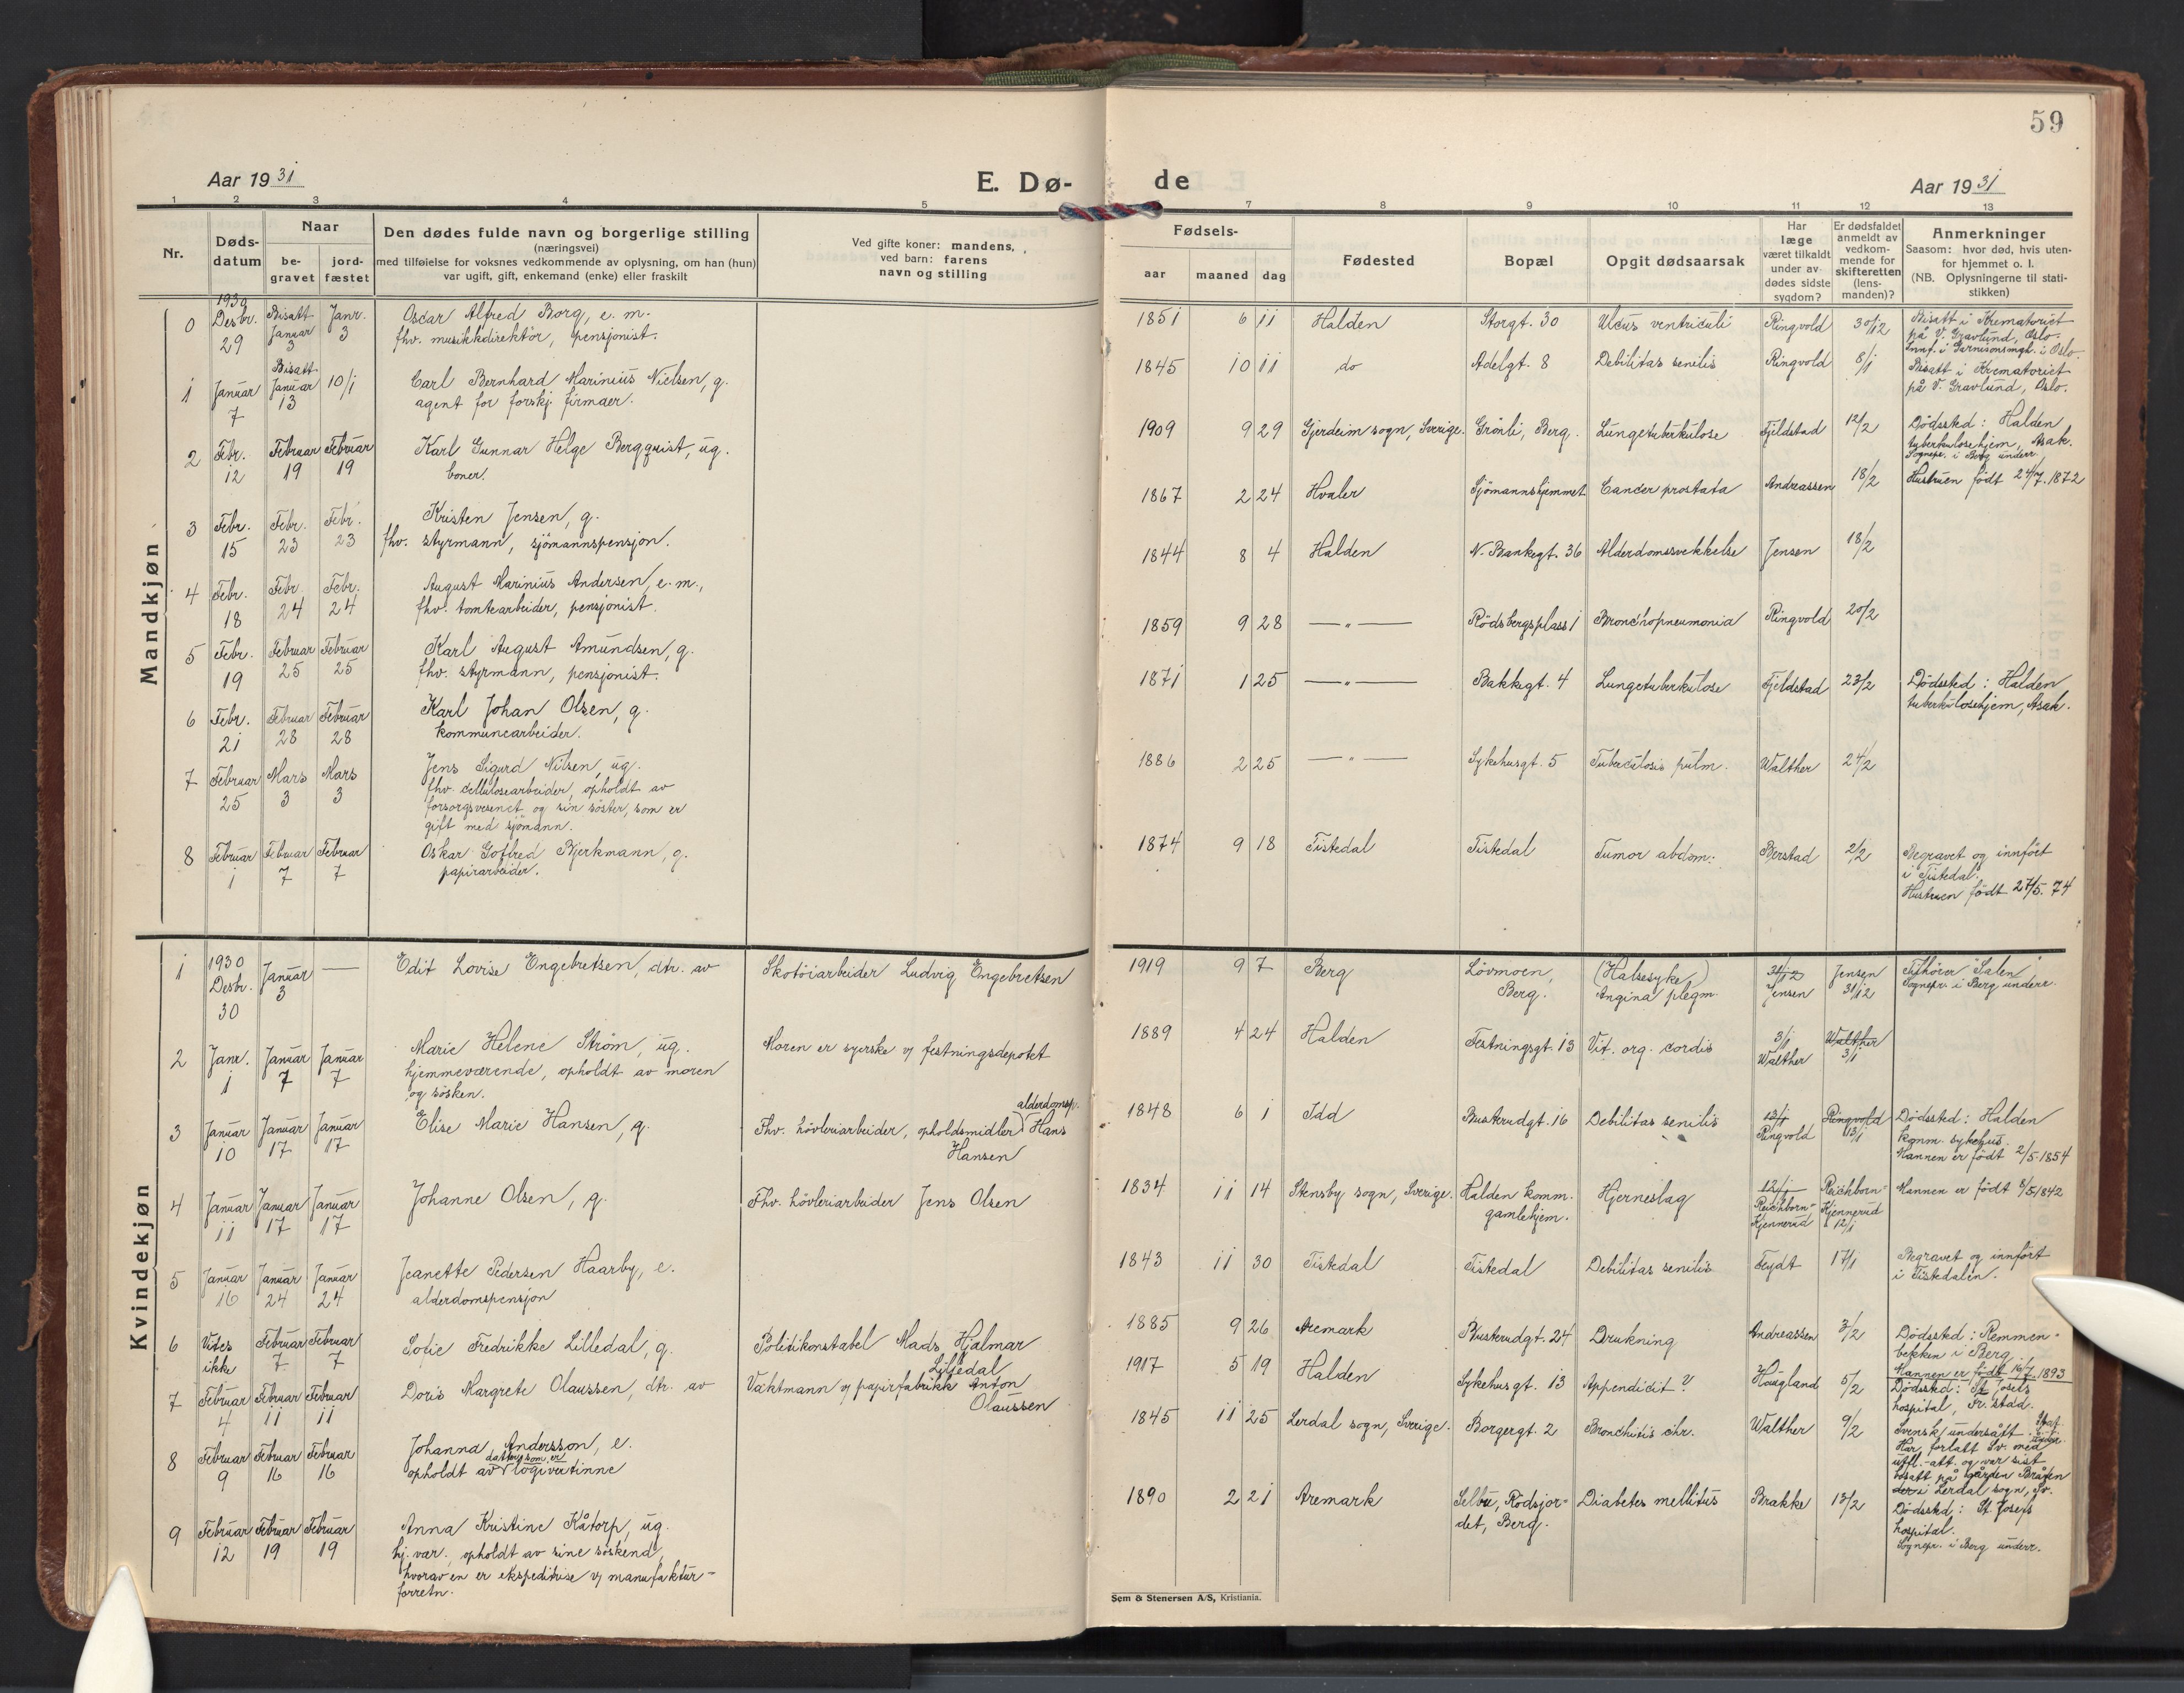 59
Aar 1931
E. Dø-
de
Aar 1931
1 2 3 4 5 7 8 9 10 11 12 13
Nr.
Døds-
datum
Naar
be-
gravet
jord-
fæstet
Den dødes fulde navn og borgerlige stilling
(næringsvei)
med tilføielse for voksnes vedkommende av oplysning, om han (hun)
var ugift, gift, enkemand (enke) eller fraskilt
Ved gifte koner: mandens,
ved barn: farens
navn og stilling
Fødsels-
aar maaned dag
Fødested
Bopæl
Opgit dødsaarsak
Har
læge
været tilkaldt
under av-
dødes sidste
sygdom?
Er dødsfaldet
anmeldt av
vedkom-
mende for
skifteretten
(lens-
manden)?
Anmerkninger
Saasom: hvor død, hvis uten-
for hjemmet o. l.
(NB. Oplysningerne til stati-
stikken)
Mandkjøn
0 1930 Desbr. 29 Bisatt Januar 3 Janr. 3
Oscar Alfred Borg, e. m.
fhv. musikkdirektör, pensjonist.
1851 6 11 Halden Storgt. 30 Ulcus ventriculi Ringvold 30/12
Bisatt i Krematoriet
på V. Gravlund, Oslo.
Innf. i Garnisonsmgh. i Oslo.
1 Januar 7 Bisatt Januar 13 10/1
Carl Bernhard Marinius Nielsen, g.
agent for forskj. firmaer.
1845 10 11 do Adelgt. 8 Debilitas senilis Ringvold 8/1
Bisatt i Krematoriet
på V. Gravlund, Oslo.
2 Febr. 12 Februar 19 Februar 19
Karl Gunnar Helge Bergquist, ug.
boner.
1909 9 29 Gjerdeim sogn, Sverige. Grönli, Berg. Lungetuberkulose Fjeldstad 12/2
Dödssted: Halden
tuberkulosehjem, Asak.
Sognepr. i Berg underr.
3 Febr. 15 Febr. 23 Febr. 23
Kristen Jensen, g.
fhv. styrmann, sjömannspensjon.
1867 2 24 Hvaler Sjömannshjemmet Cancer prostata Andreassen 18/2
Hustruen födt 24/7. 1872
4 Febr. 18 Febr. 24 Febr. 24
August Marinius Andersen, e. m.,
fhv. tomtearbeider, pensjonist.
1844 8 4 Halden N. Bankegt. 36 Alderdomssvekkelse Jensen 18/2
5 Febr. 19 Februar 25 Februar 25
Karl August Amundsen, g.
fhv. styrmann, pensjonist.
1859 9 28 — " — Rödsbergsplass 1 Bronchopneumonia Ringvold 20/2
6 Febr. 21 Februar 28 Februar 28
Karl Johan Olsen, g.
kommunearbeider.
1871 1 25 — " — Bakkegt. 4 Lungetuberkulose Fjeldstad 23/2
Dödssted: Halden
tuberkulosehjem, Asak.
7 Februar 25 Mars 3 Mars 3
Jens Sigurd Nilsen, ug.
fhv. cellulosearbeider, opholdt av
forsorgsvesenet og sin söster, som er
gift med sjömann.
1886 2 25 — " — Sykehusgt. 5 Tuberculosis pulm. Walther 24/2
8 Februar 1 Februar 7 Februar 7
Oskar Gotfred Bjerkmann, g.
papirarbeider.
1874 9 18 Tistedal Tistedal Tumor abdom: Berstad 2/2
Begravet og innfört
i Tistedal.
Hustruen födt 27/5. 74
Kvindekjøn
1 1930 Desbr. 30 Januar 3 —
Edit Lovise Engebretsen, dtr. av
Skotöiarbeider Ludvig Engebretsen
1919 9 7 Berg Lövmoen, Berg. (Halsesyke) Angina plegm. 31/12 Jensen Jensen 31/12
Tilhörer "Salen"
Sognepr. i Berg underr.
2 Janr. 1 Januar 7 Januar 7
Marie Helene Ström, ug.
hjemmeværende, opholdt av moren
og sösken.
Moren er syerske v/ festningsdepotet
1889 4 24 Halden Festningsgt. 13 Vit. org. cordis 3/1 Walther Walther 3/1
3 Januar 10 Januar 17 Januar 17
Elise Marie Hansen, g.
Fhv. hövleriarbeider, opholdsmidler alderdomsp. Hans
Hansen
1848 6 1 Idd Buskrudgt. 16 Debilitas senilis 13/1 Ringvold Ringvold 13/1
Dödssted: Halden
komm. sykehus.
Mannen er födt 2/5. 1854
4 Januar 11 Januar 17 Januar 17
Johanne Olsen, g.
Fhv. hövleriarbeider Jens Olsen
1834 11 14 Stensby sogn, Sverige. Halden komm. gamlehjem. Hjerneslag 12/1 Reichborn-Kjennerud Reichborn-Kjennerud 12/1
Mannen er födt 8/5. 1842
5 Januar 16 Januar 24 Januar 24
Jeanette Pedersen Haarby, e.
alderdomspensjon
1843 11 30 Tistedal Tistedal Debilitas senilis Feydt 17/1
Begravet og innfört
i Tistedalen.
6 Vites ikke Februar 7 Februar 7
Sofie Fredrikke Lilledal, g.
Politikonstabel Mads Hjalmar
Lilledal
1885 9 26 Aremark Buskrudgt. 24 Drukning Andreassen 3/2
Dödssted: Remmen-
bekken i Berg
Mannen er födt 16/7. 1893
7 Februar 4 Februar 11 Februar 11
Doris Margrete Olaussen, dtr. av
Vaktmann v/ papirfabrikk Anton
Olaussen
1917 5 19 Halden Sykehusgt. 13 Appendicit? Haugland 5/2
Dödssted: St. Josefs
hospital, Fr.stad.
8 Februar 9 Februar 16 Februar 16
Johanna Andersson, e.
opholdt av datter som er logivertinne
1845 11 25 Lerdal sogn, Sverige. Borgergt. 2 Bronchitis chr. Walther 9/2
Svensk undersått.
Har forlatt Sv. med
utfl.-att. og var sist
bosatt på gården Bråten
i Lerdal sogn, Sv.
9 Februar 12 Februar 19 Februar 19
Anna Kristine Kåtorp, ug.
hj. var., opholdt av sine söskend,
hvorav en er ekspeditrise v/ manufaktur-
forretn.
1890 2 21 Aremark Selbu, Rödsjor-
det, Berg. Diabetes mellitus Brakke 13/2
Dödssted: St. Josefs
hospital.
Sognepr. i Berg underr.
Sem & Stenersen A/S, Kristiania.